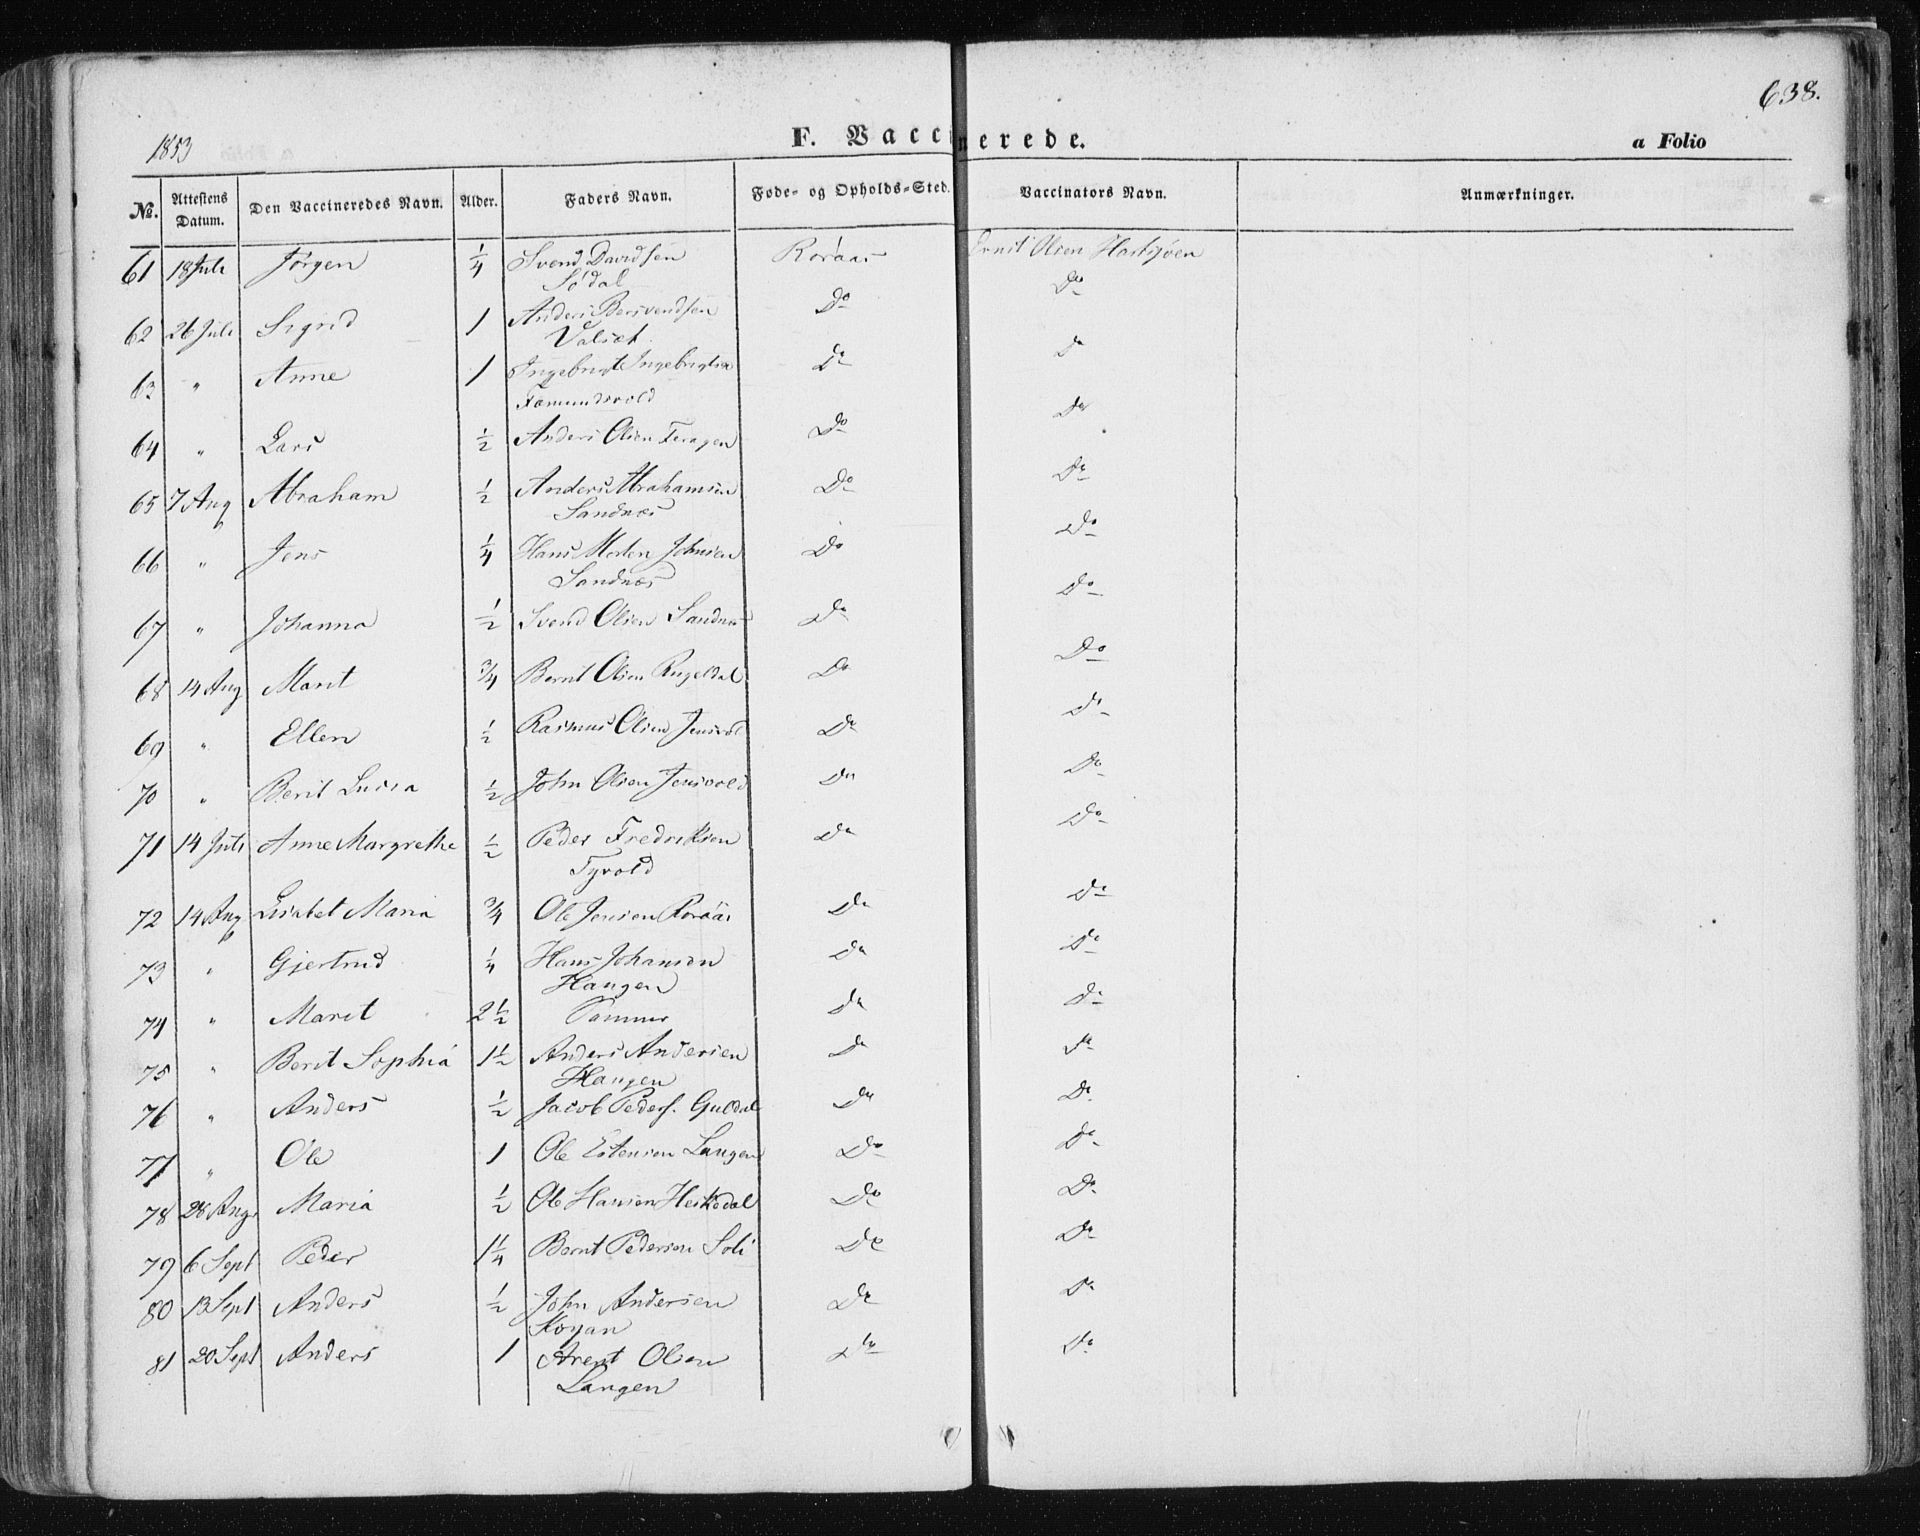 638.
1853 F. Vaccinerede. a Folio
No. Attestens Datum. Den Vaccineredes Navn. Alder. Faders Navn. Føde- og Opholds-Sted. Vaccinators Navn. Anmærkninger.
61 18 Juli Jörgen 1/4 Svend Davidsen Röraas Olsen
Södal Do
62 26 Juli Sigrid 1 Anders Bersvendsen Do
Valset Do
63 " Anne 1 Ingebrigt Ingebrigtsen Do
Fæmundsvold Do
64 " Lars 1/2 Anders Olsen Feragen Do
65 7 Aug Abraham 1/2 Anders Abrahamsen Do Do
Sandnes
66 " Jens 1/4 Hans Morten Johnsen Do Do
Sandnes
67 " Johanna 1/2 Svend Olsen Sandnes Do Do
68 14 Aug Marit 3/4 Bernt Olsen Rugeldal Do Do
69 " Ellen 1/2 Rasmus Olsen Jensvol Do Do
70 " Berit Lucia 1/2 John Olsen Jensvold Do Do
71 14 Juli Anne Margrethe 1/2 Peder Fredriksen Do Do
Tyvold
72 14 Aug Lisabet Maria 3/4 Ole Jensen Roraas Do Do
73 " Gjertrud 1/4 Hans Johansen Do Do
Haugen
74 " Marit 2 1/2 Sammes Do Do
75 " Berit Sophia 1 1/2 Anders Andersen Do Do
Haugen
76 " Anders 1/2 Jacob Peders. Guldal Do Do
77 " Ole 1 Ole Estensen Langen Do Do
78 28 Aug Maria 1/2 Ole Hansen Do Do
79 6 Sept Peder 1 1/4 Bernt Pedersen Soli Do Do
80 13 Sept Anders 1/2 John Andersen Do Do
Kojan
81 20 Sept Anders 1 Arent Olsen Do Do
Langen